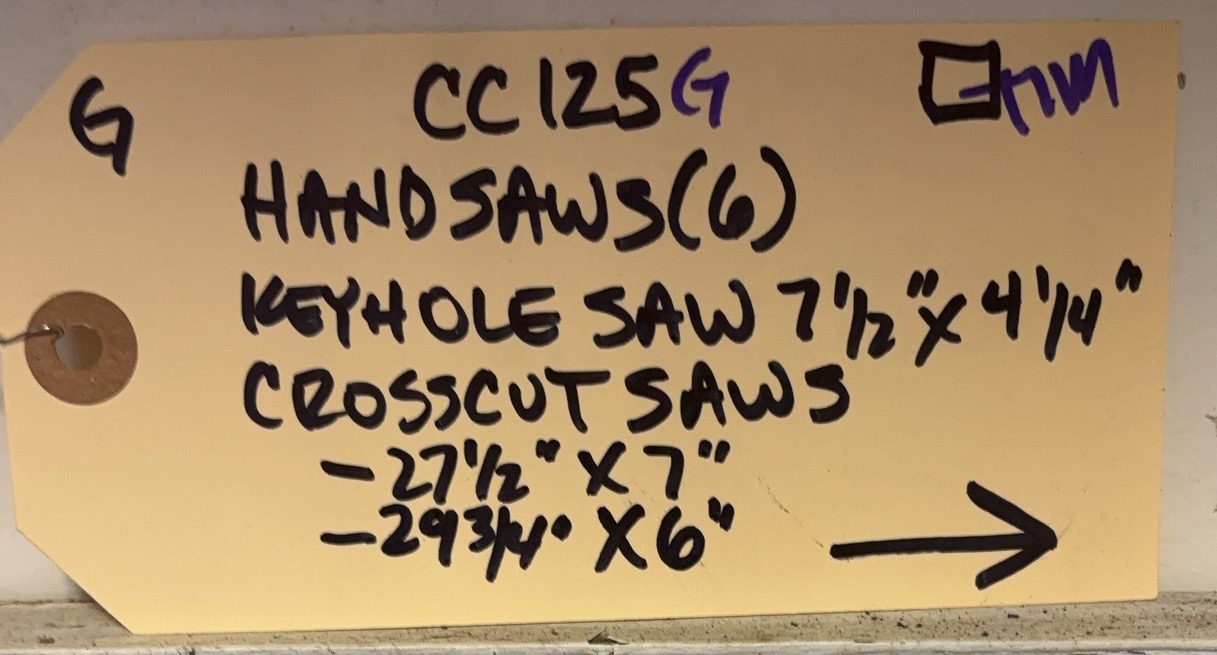 G
CC125G
HANDSAWS(6)
KEYHOLE SAW 7 1/2" X 4 1/4"
CROSSCUT SAWS
- 27 1/2" X 7"
- 29 3/4" X 6"